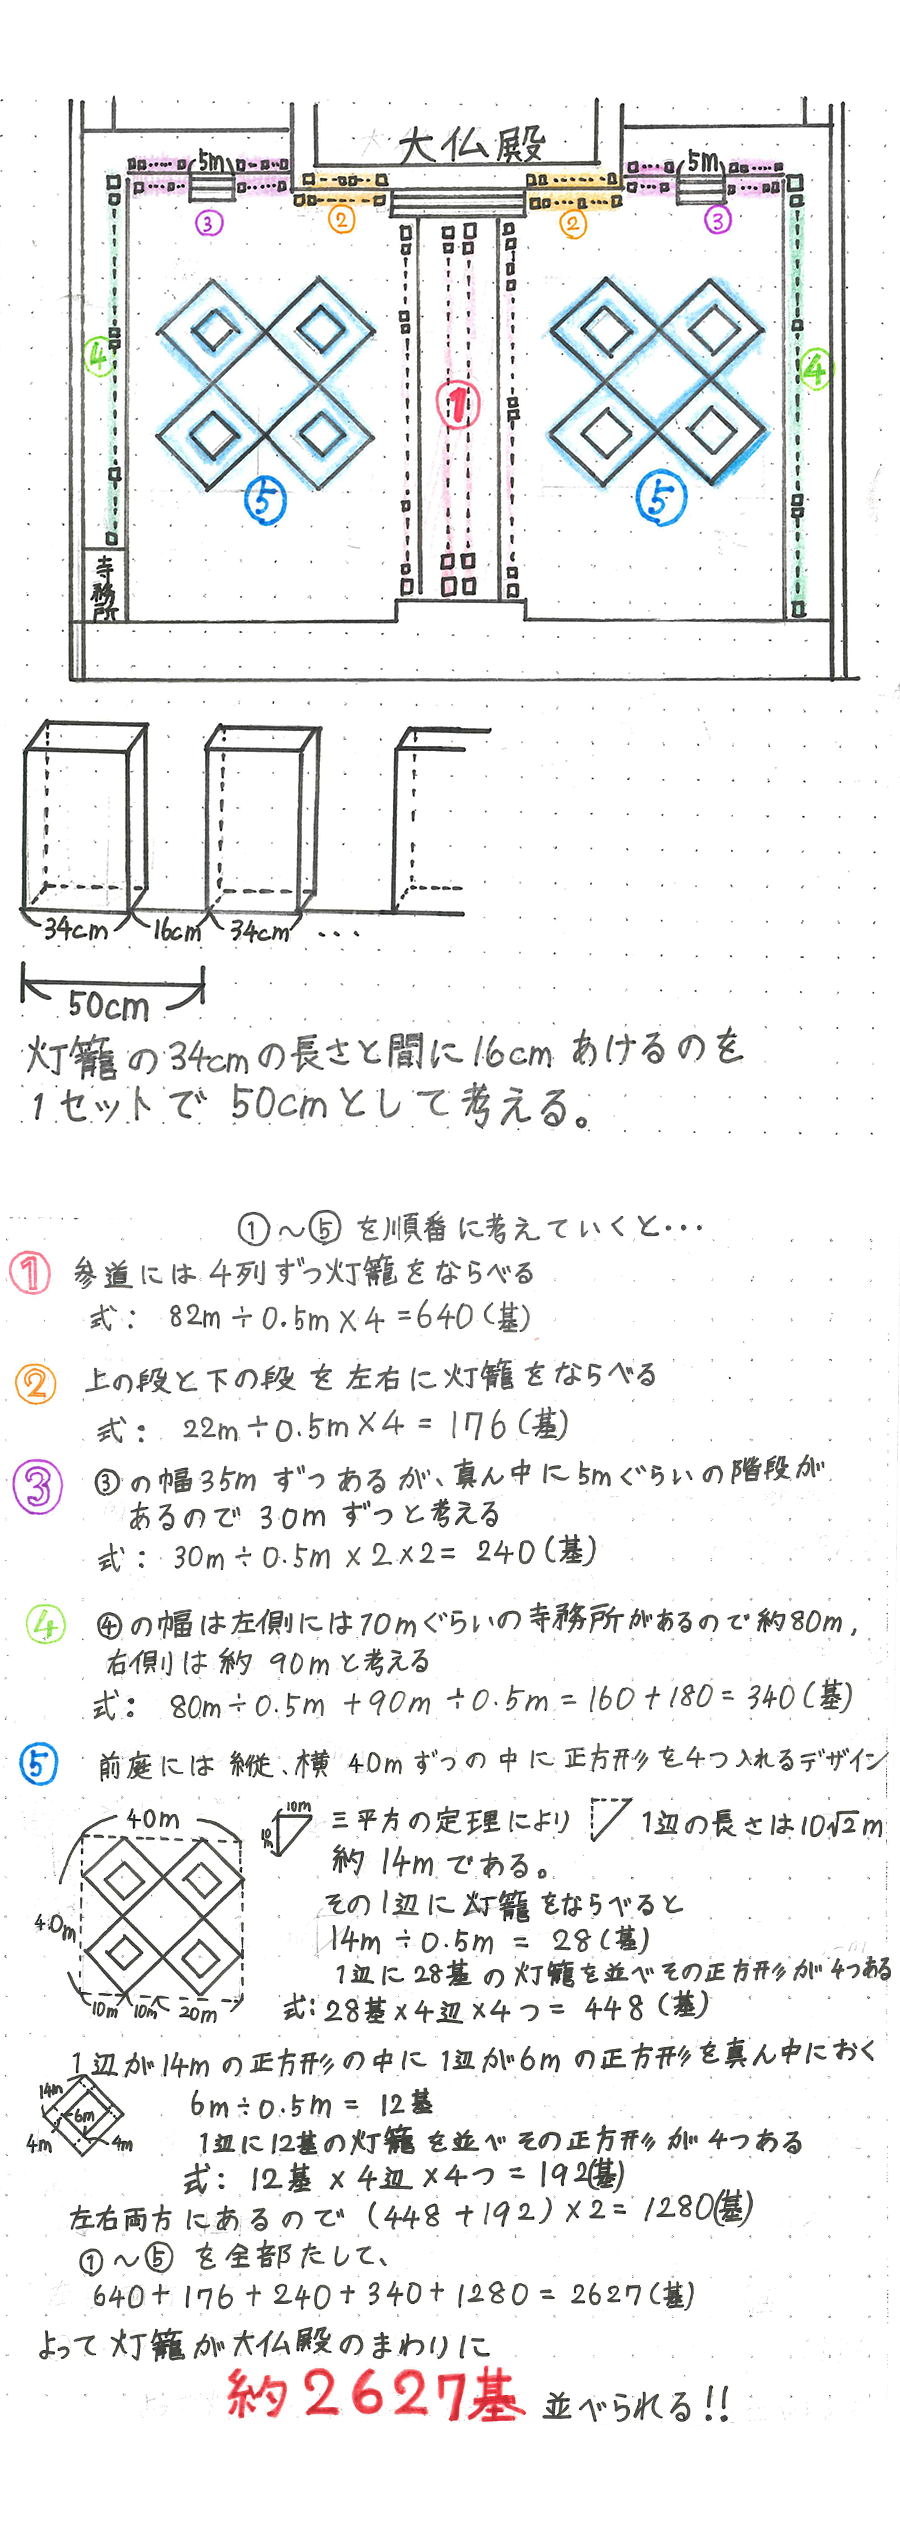 大仏殿
5m
5m
③
②
②
③
④
①
④
⑤
⑤
寺務所
34cm
16cm
34cm
...
50cm
灯籠の34cmの長さと間に16cmあけるのを
1セットで 50cmとして考える。
①～⑤を順番に考えていくと…
① 参道には4列ずつ灯籠をならべる
式： 82m÷0.5m×4=640(基)
② 上の段と下の段を左右に灯籠をならべる
式： 22m÷0.5m×4=176(基)
③ ③の幅35mずつあるが、真ん中に5mぐらいの階段が
あるので30mずつと考える
式： 30m÷0.5m×2×2=240(基)
④ ④の幅は左側には10mぐらいの寺務所があるので約80m,
右側は約90mと考える
式： 80m÷0.5m+90m÷0.5m=160+180=340(基)
⑤ 前庭には縦、横40mずつの中に正方形を4つ入れるデザイン
40m
40m
10m
10m
20m
10m
10m
三平方の定理により 1辺の長さは10√2m
約14mである。
その1辺に灯籠をならべると
14m÷0.5m=28(基)
1辺に28基の灯籠を並べその正方形が4つある
式：28基×4辺×4つ=448(基)
1辺が14mの正方形の中に1辺が6mの正方形を真ん中におく
14m
6m
4m
4m
6m÷0.5m=12基
1辺に12基の灯籠を並べその正方形が4つある
式： 12基×4辺×4つ=192(基)
左右両方にあるので(448+192)×2=1280(基)
①～⑤を全部たして、
640+176+240+340+1280=2627(基)
よって灯籠が大仏殿のまわりに
約2627基 並べられる!!